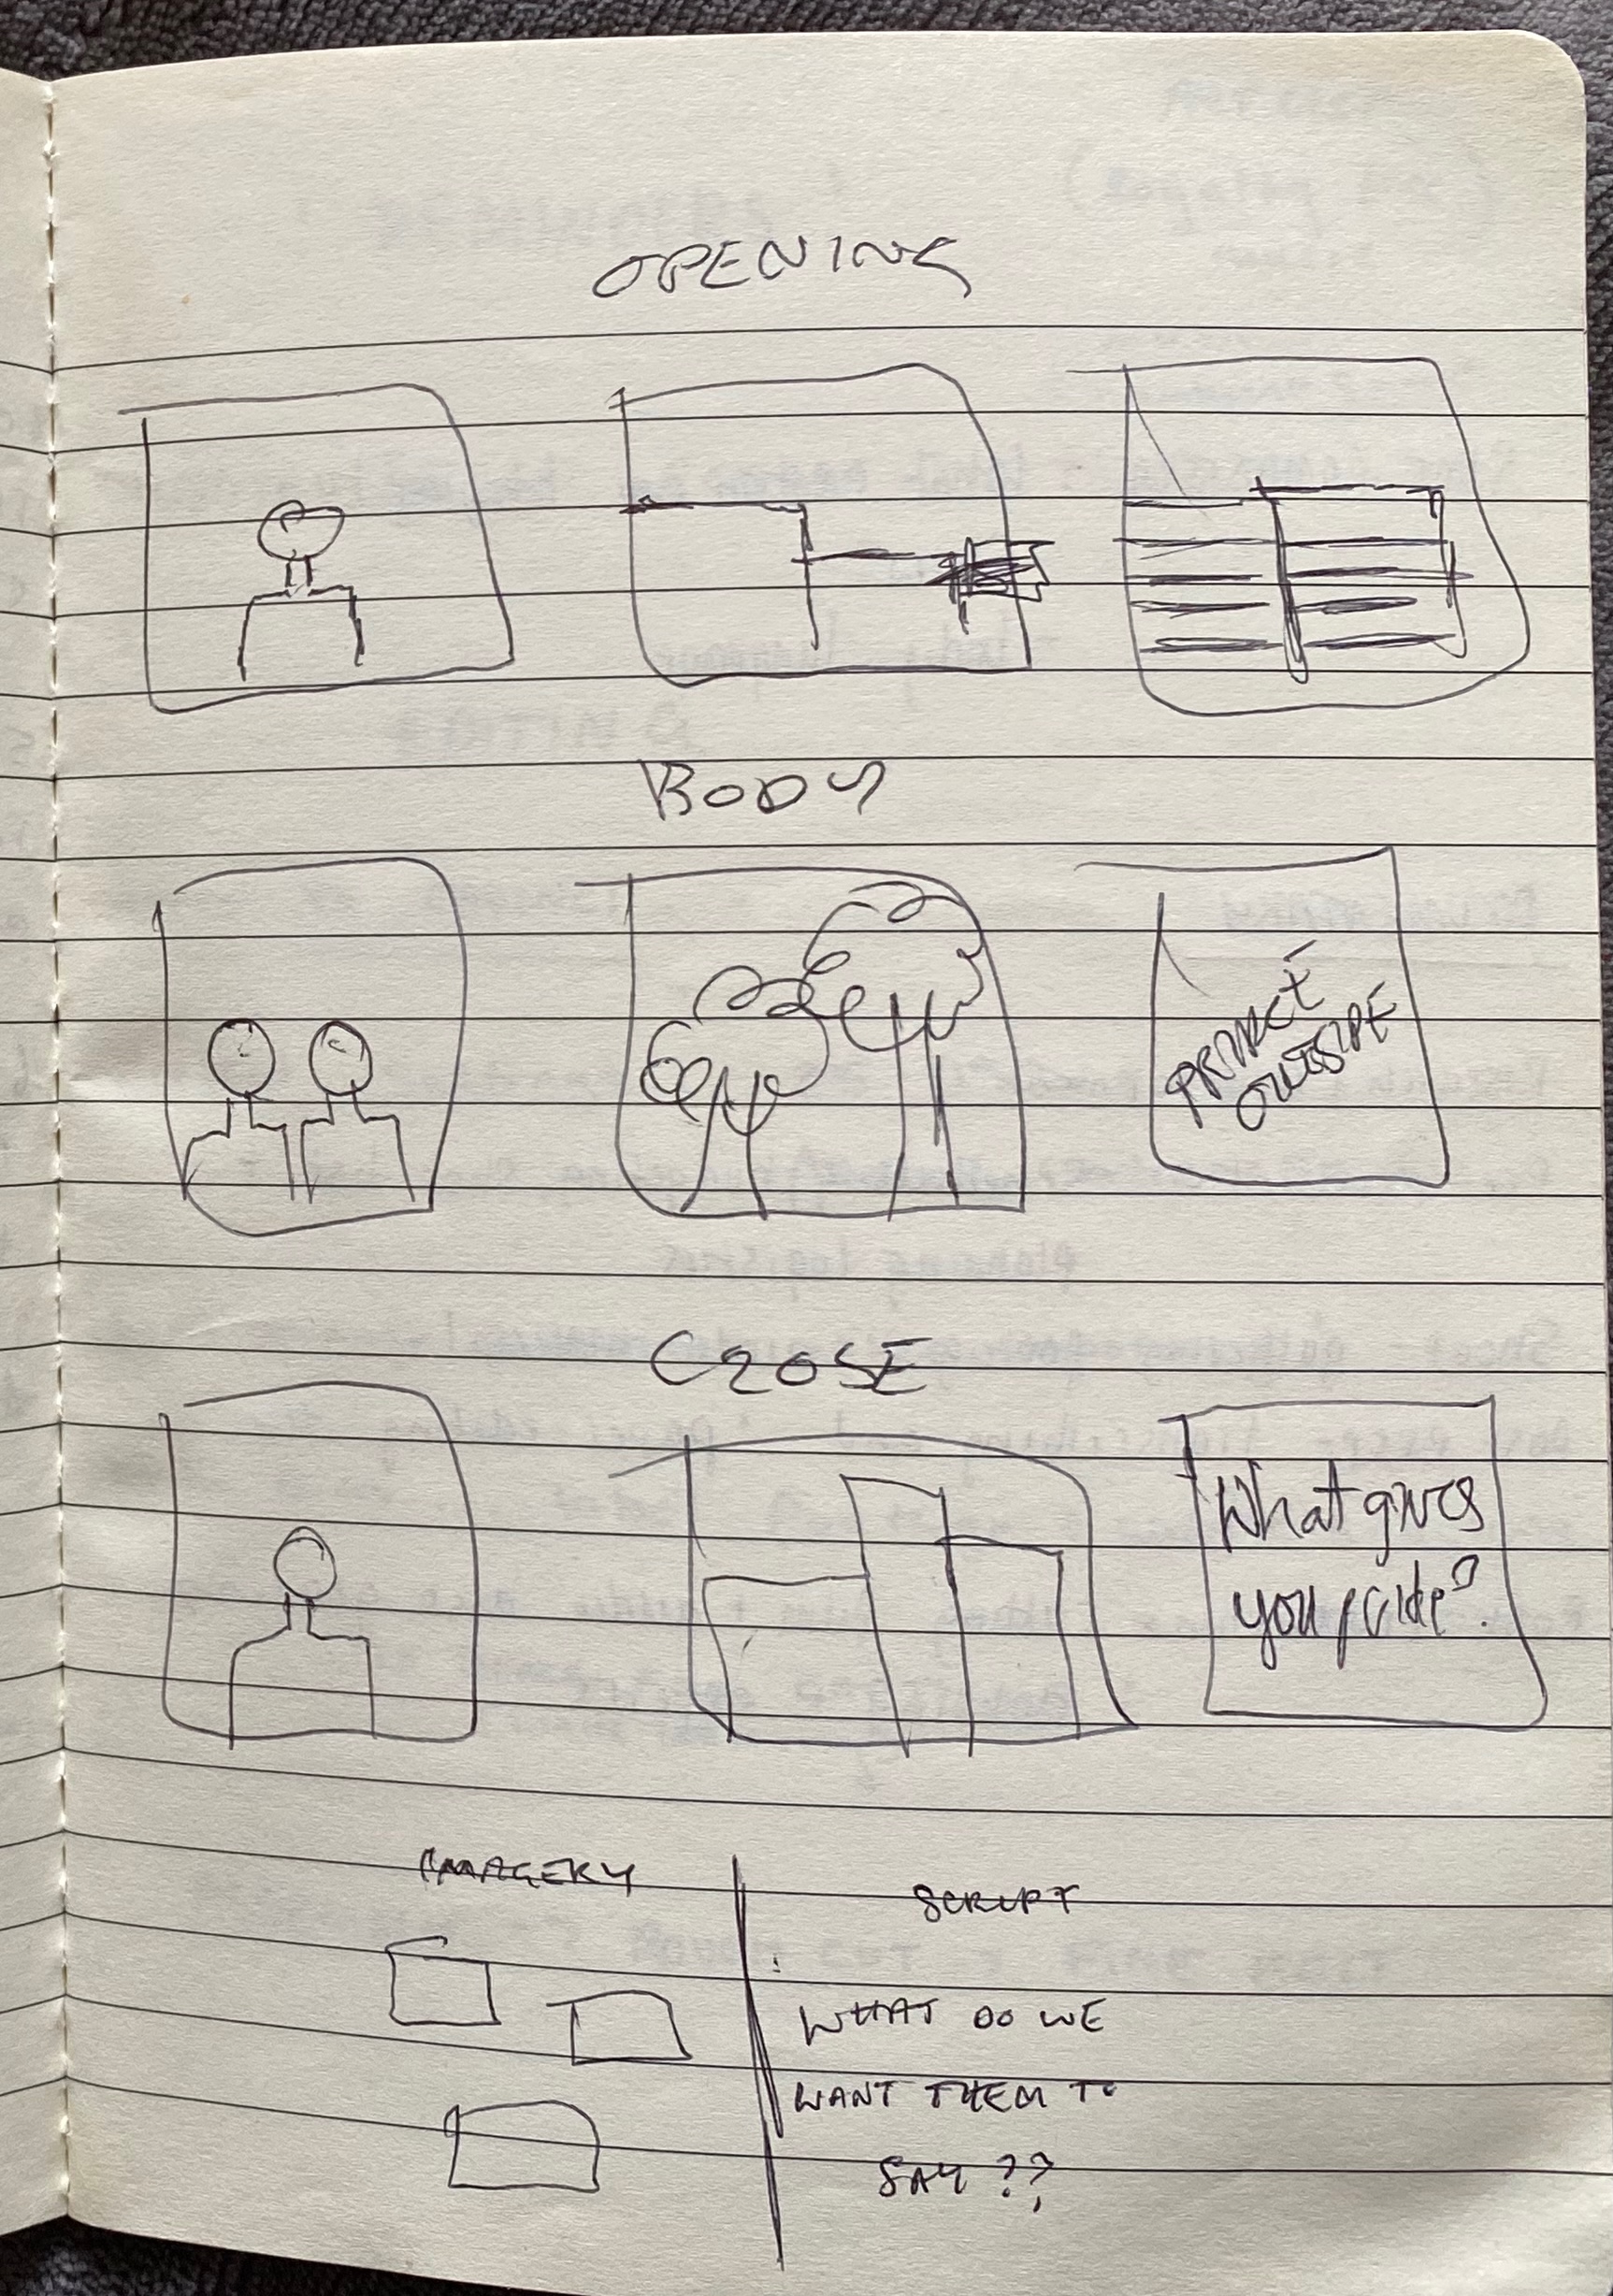 OPENING
BODY
OUTSIDE
CLOSE
What gives
you pride?
IMAGERY
SCRIPT
WHAT DO WE
WANT THEM TO
SAY??